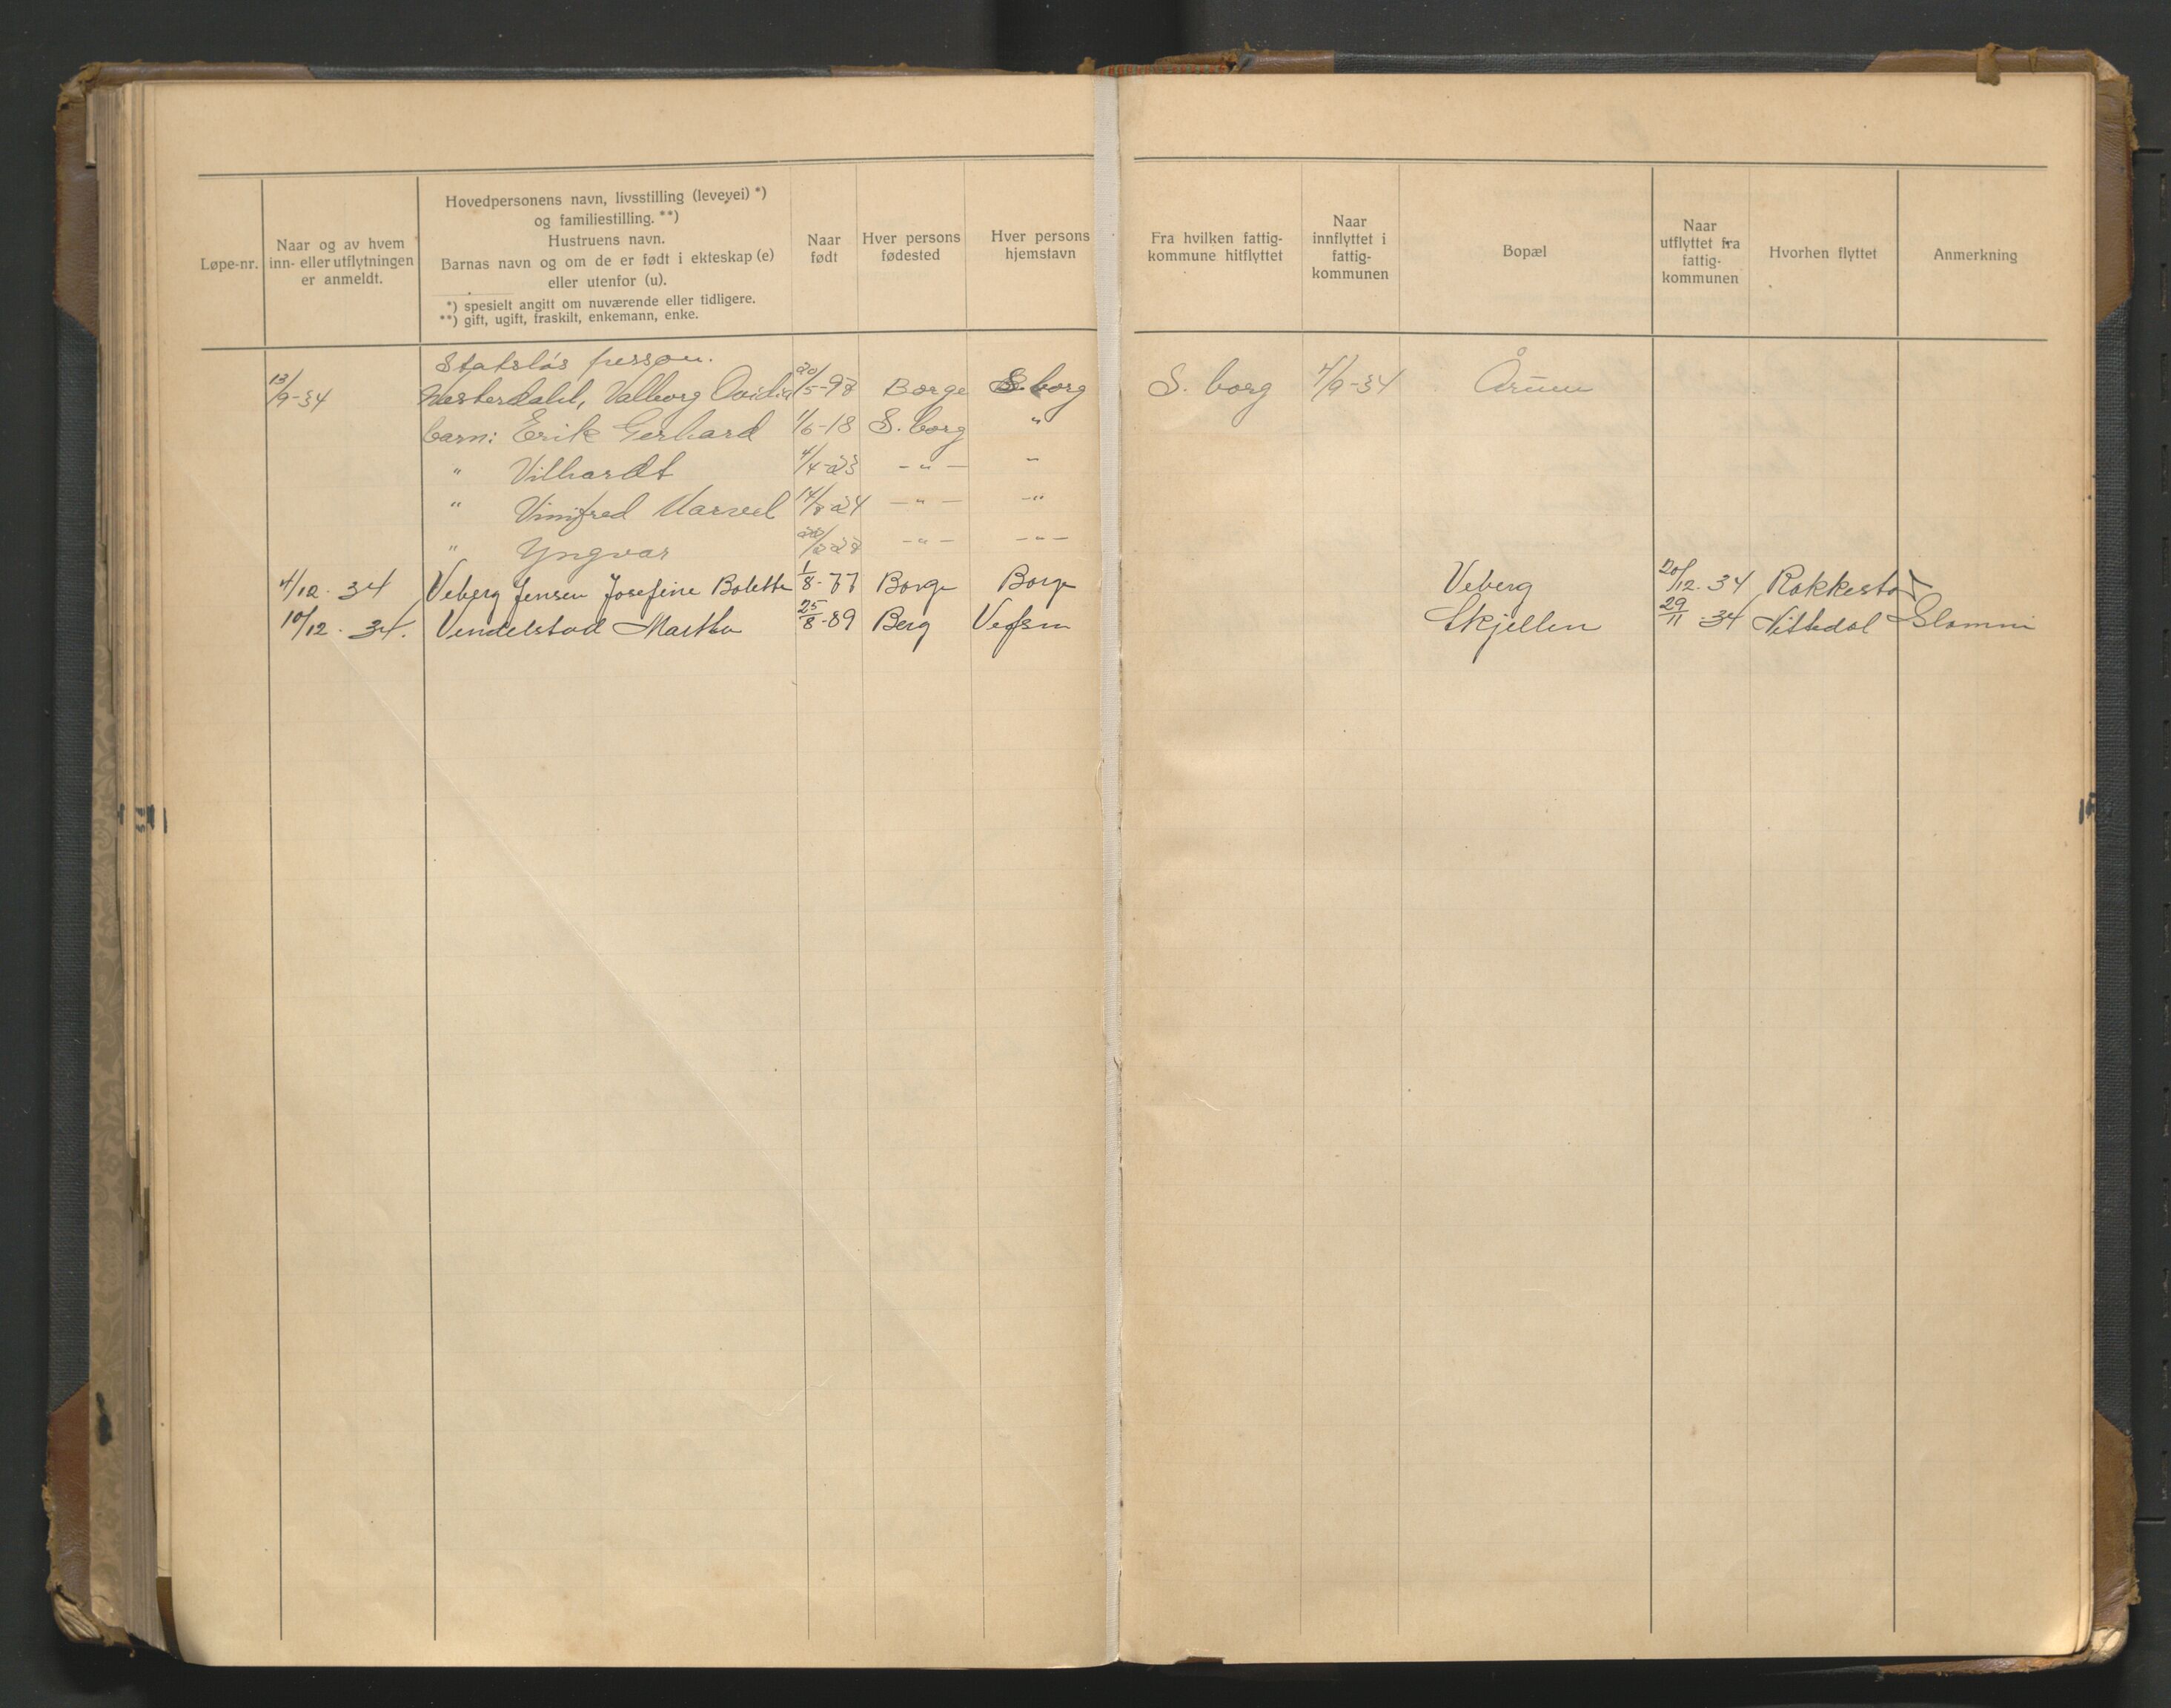 Løpe-nr.
Naar og av hvem
inn- eller utflytningen
er anmeldt.
Hovedpersonens navn, livsstilling (levevei) *)
og familiestilling. **)
Hustruens navn.
Barnas navn og om de er født i ekteskap (e)
eller utenfor (u).
*) spesielt angitt om nuværende eller tidligere.
**) gift, ugift, fraskilt, enkemann, enke.
Naar
født
Hver persons
fødested
Hver persons
hjemstavn
Fra hvilken fattig-
kommune hitflyttet
Naar
innflyttet i
fattig-
kommunen
Bopæl
Naar
utflyttet fra
fattig-
kommunen
Hvorhen flyttet
Anmerkning
Statsløs person.
13/9-34 Westerdahl, Valborg Ovidia 20/5-98 Borge S.borg S. borg 4/9-34 Årum
barn: Erik Gerhard 1/6-18 S.borg "
" Vilhardt 4/4-23 -"- "
" Vinifred Marvel 14/8-24 -"- -"
" Yngvar 22/2-28 -"- -"-
4/12. 34 Veberg Jensen Josefine Bolette 1/8-77 Borge Borge Veberg 20/12. 34 Rakkestad
10/12. 34. Vendelstad Martha 25/8-89 Berg Vefsn Skjellin 29/11-34 Nittedal